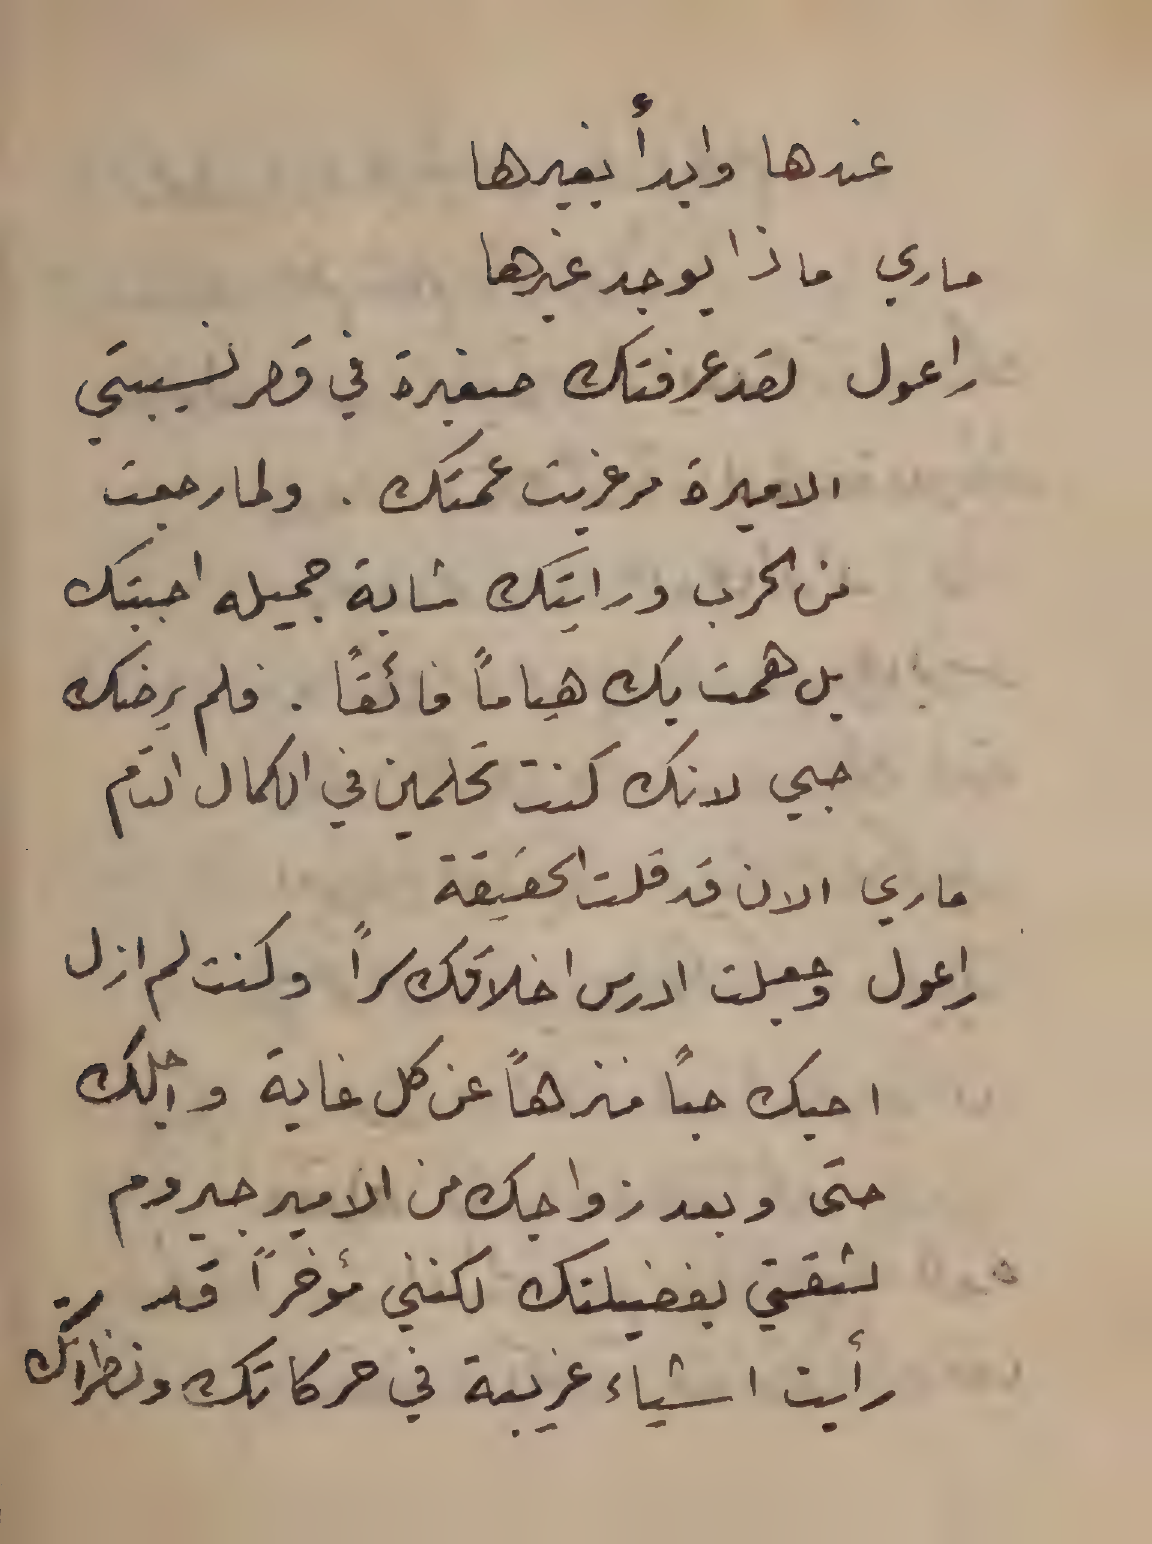 عندها وابدأ بغيرها
ماري ماذا يوجد غيرها
راعول لقد عرفتك صغيرة في قصر نسيبتي
الاميرة مرغريت عمتك . ولما رجعت
من الحرب ورايتك شابة جميله احببتك
بل همت بك هياماً فائقاً . فلم يرضك
حبي لانك كنت تحلمين في الكمال التام
ماري الان قد قلت الحقيقة
راعول وجعلت ادرس اخلاقك سراً وكنت لم ازل
احبك حباً منزهاً عن كل غاية واجلك
حتى وبعد زواجك من الامير جيروم
لثقتي بفضيلتك لكنني مؤخراً قد
رأيت اشياء غريبة في حركاتك ونظراتك